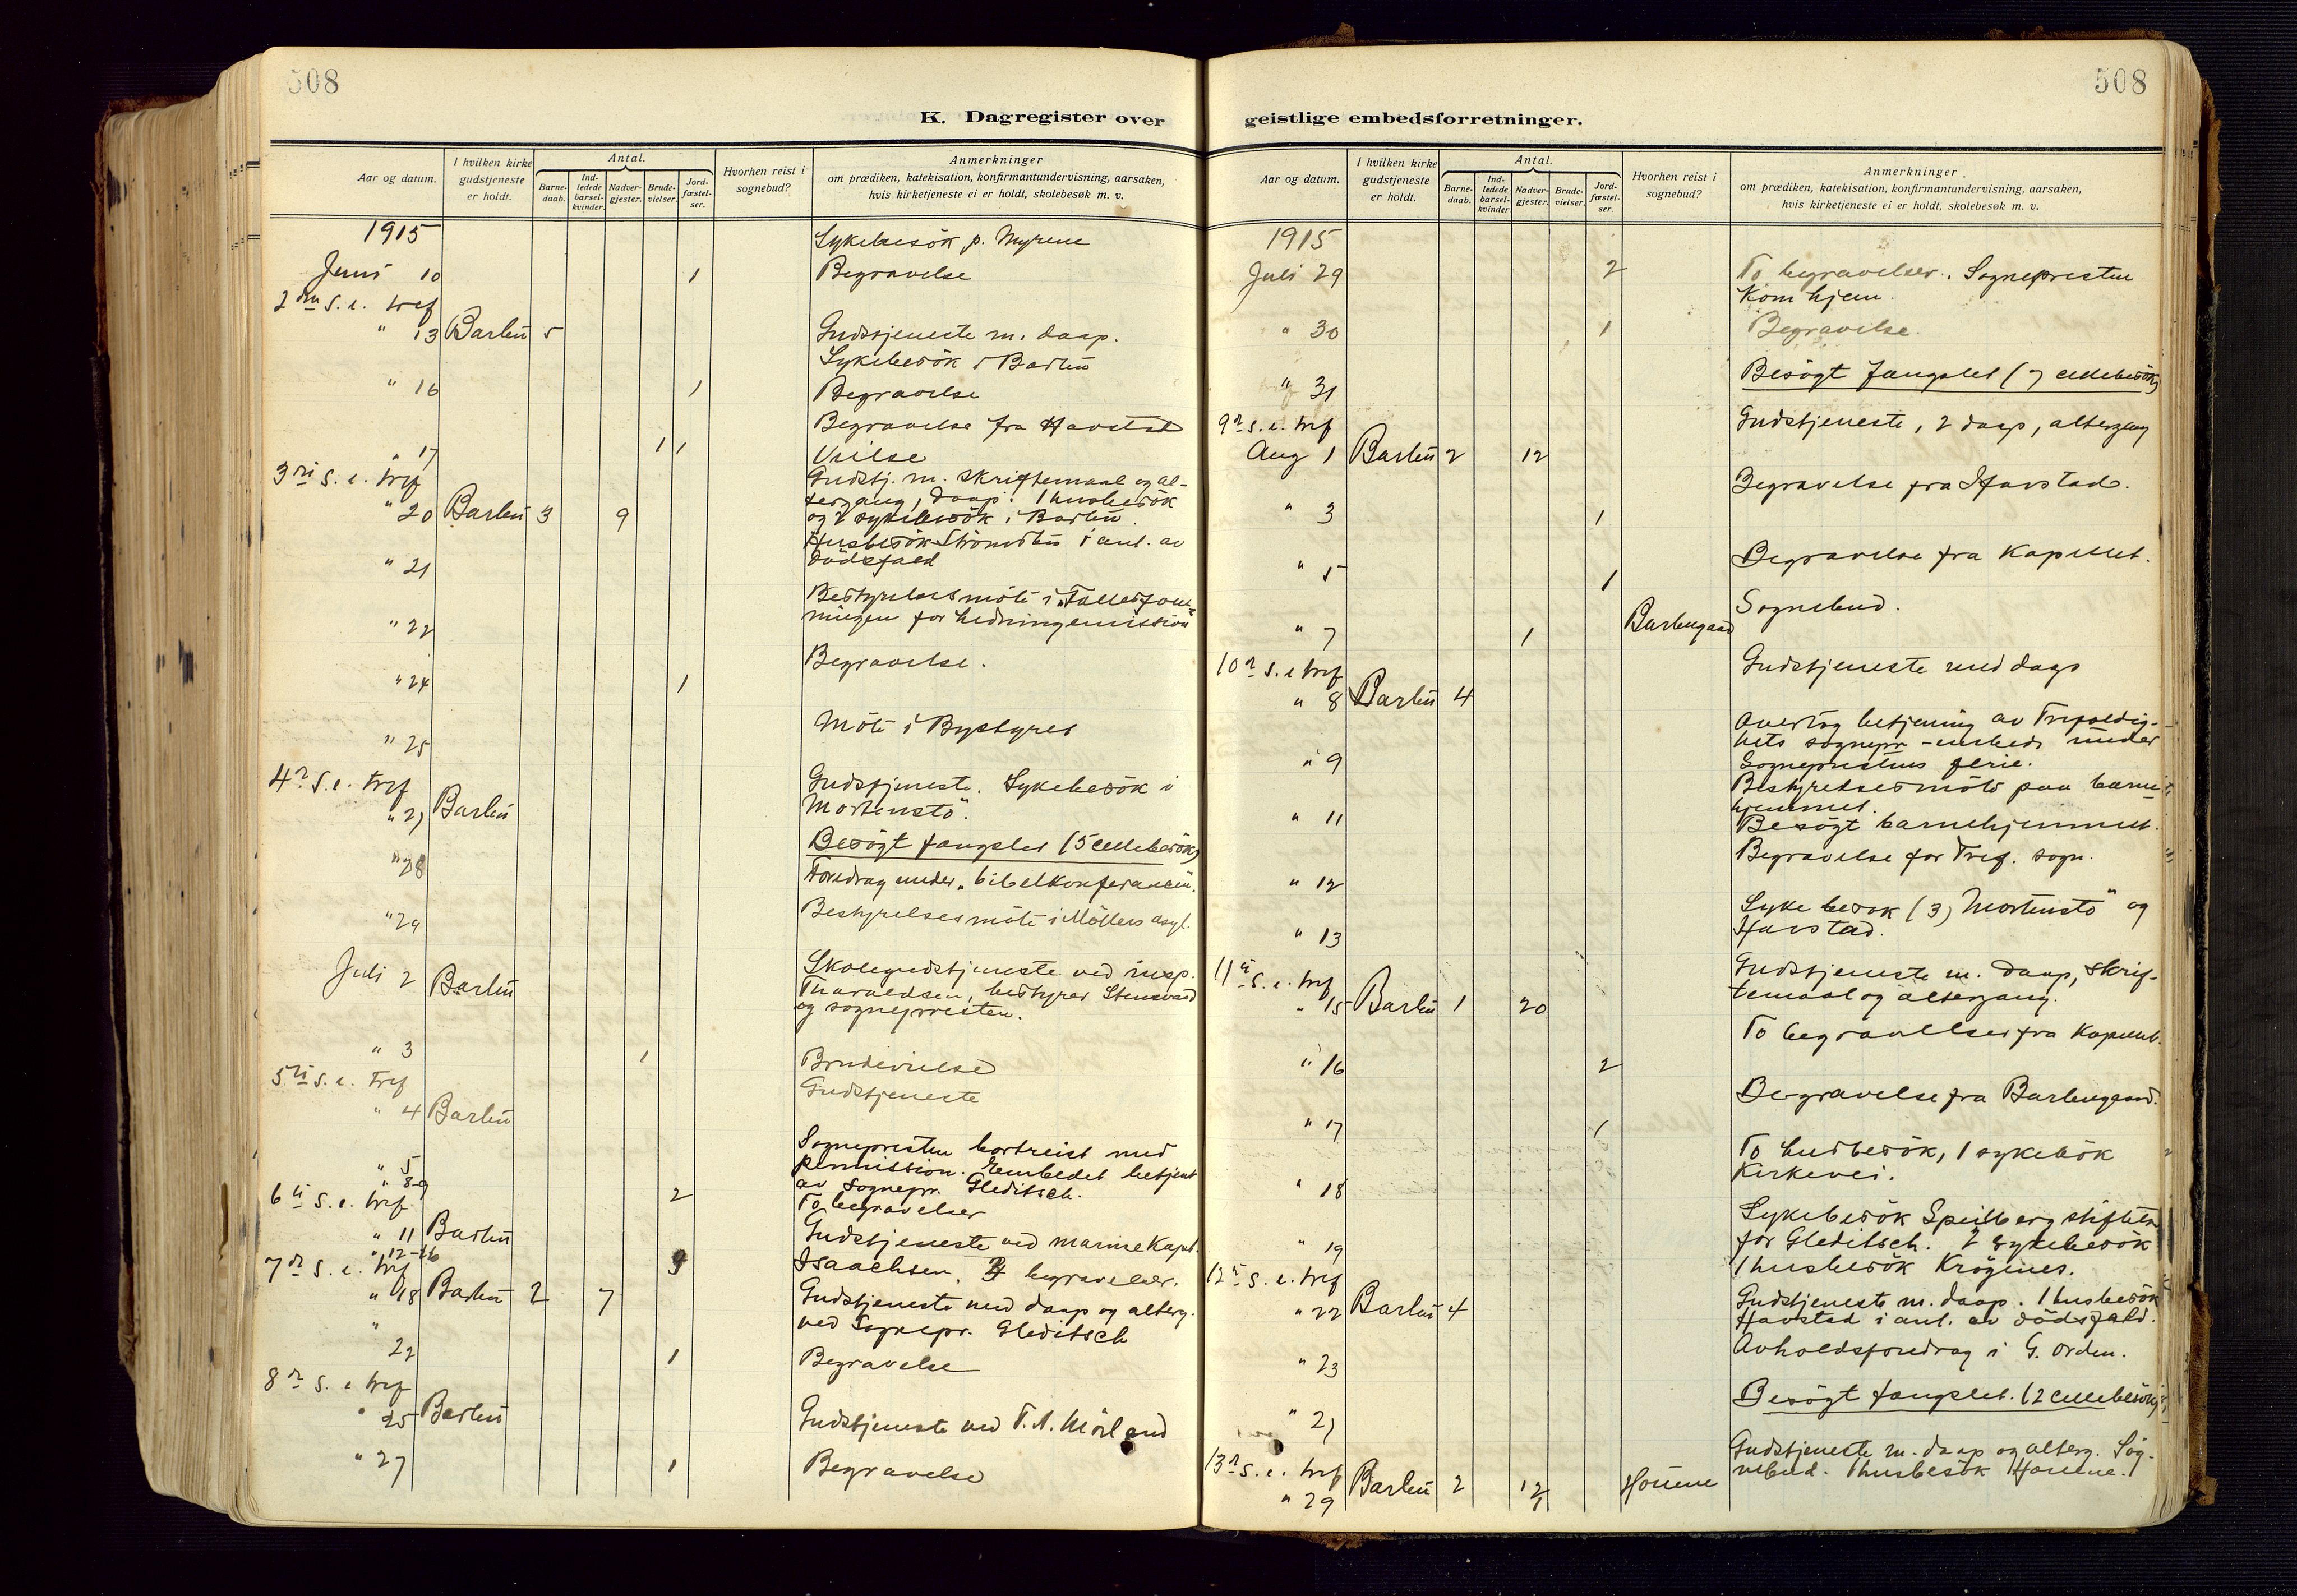 508
K. Dagregister over
Aar og datum.
I hvilken kirke gudstjeneste er holdt.
Antal.
Barne-daab.
Ind-ledede barsel-kvinder.
Nadver-gjester.
Brude-vielser.
Jord-fæstel-ser.
Hvorhen reist i sognebud?
Anmerkninger
om prædiken, katekisation, konfirmantundervisning, aarsaken,
hvis kirketjeneste ei er holdt, skolebesøk m. v.
1915 Sykebesök p. Myrene
Juni 10 1 Begravelse
2den S. e. tref
" 13 Barbu 5 Gudstjeneste m. daap.
Sykebesök i Barbu
" 16 1 Begravelse
Begravelse fra Havstad
" 17 1 1 Vielse
3die S. e. tref Gudstj. m. skriftemaal og al-
tergang, daap. 1 husbesök
" 20 Barbu 3 9 og 2 sykebesök i Barbu.
Husbesök Strömsbu i anl. av
" 21 dödsfald
Bestyrelsesmöte i "Fællesfore-
" 22 ningen for hedningemission
Begravelse.
" 24 1
Möte i Bystyret
" 25
4de S. e. tref Gudstjeneste. Sykebesök i
" 27 Barbu Mortensto".
" 28 Besögt fængslet (5 cellebesök)
Foredrag under "bibelkonferansen".
" 29 Bestyrelsesmöte i Möllers asyl.
Juli 2 Barbu Skolegudstjeneste ved insp.
Thorvaldsen, bestyrer
og sognepresten.
" 3 1 Brudevielse
5te S. e. tref Gudstjeneste
" 4 Barbu
" 5 Sognepresten bortreist med
permission. Embedet betjent
" 8-9 av Sognepr. Gleditsch.
6te S. e. tref 2 To begravelser
" 11 Barbu Gudstjeneste ved marinekapt.
" 12-16 Isaachsen. begravelser.
7de S. e. tref
" 18 Barbu 2 7 Gudstjeneste med daap og alterg.
" ved Sognepr. Gleditsch
22 1 Begravelse
8de S. e tref
" 25 Barbu Gudstjeneste ved T. A. Mörland
" 27 1 Begravelse
508
geistlige embedsforretninger.
Aar og datum.
I hvilken kirke gudstjeneste er holdt.
Antal.
Barne-daab.
Ind-ledede barsel-kvinder
Nadver-gjester.
Brude-vielser.
Jord-fæstel-ser.
Hvorhen reist i sognebud?
Anmerkninger.
om prædiken, katekisation, konfirmantundervisning, aarsaken,
hvis kirketjeneste ei er holdt, skolebesøk m. v.
1915
Juli 29 2 To begravelser. Sognepresten
kom hjem.
" 30 1 Begravelse.
" 31 Besögt fængslet (7 cellebesök)
9de S. e. tref
Aug 1 Barbu 2 12 Gudstjeneste, 2 daap, altergang
" 3 1 Begravelse fra Havstad.
" 5 1 Begravelse fra Kapellet.
" 7 1 Barbugaard Sognebud.
10de S. e tref
" 8 Barbu 4 Gudstjeneste med daap
" 9 Overtog betjening av Trefoldig-
hets sognepr-embede under
Sogneprestens ferie.
" 11 Bestyrelsesmöte paa barne-
hjemmet.
Besögt barnehjemmet.
" 12 Begravelse for Tref. sogn.
" 13 Sykebesök (3) Mortensto" og
Havstad.
11te S. e. tref
" 15 Barbu 1 20 Gudstjeneste m. daap, skrif-
temaal og altergang.
" 16 2 To begravelser fra Kapellet.
" 17 1 Begravelse fra Barbugaard.
" 18 To husbesök, 1 sykebök
Kirkevei.
" 19 Sykebesök Speilberg stiftelse
for Gleditsch. 2 sykebesök
1 husbesök Krögenes.
12te S. e. tref
" 22 Barbu 4 Gudstjeneste m. daap. 1 husbesök
Havstad i anl. av dödsfald.
" 23 Avholdsforedrag i G. Orden.
" 27 Besögt fængslet. (2 cellebesök)
13de S. e. tref
" 29 Barbu 2 12 1 Gudstjeneste m. daap og alterg. Sog-
nebud. 1 husbesök